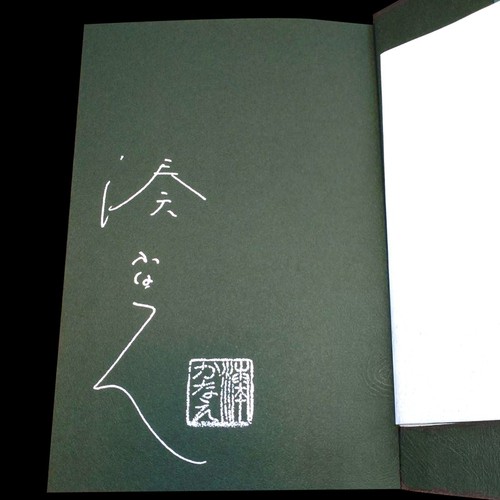 湊
かなえ
湊
かなえ